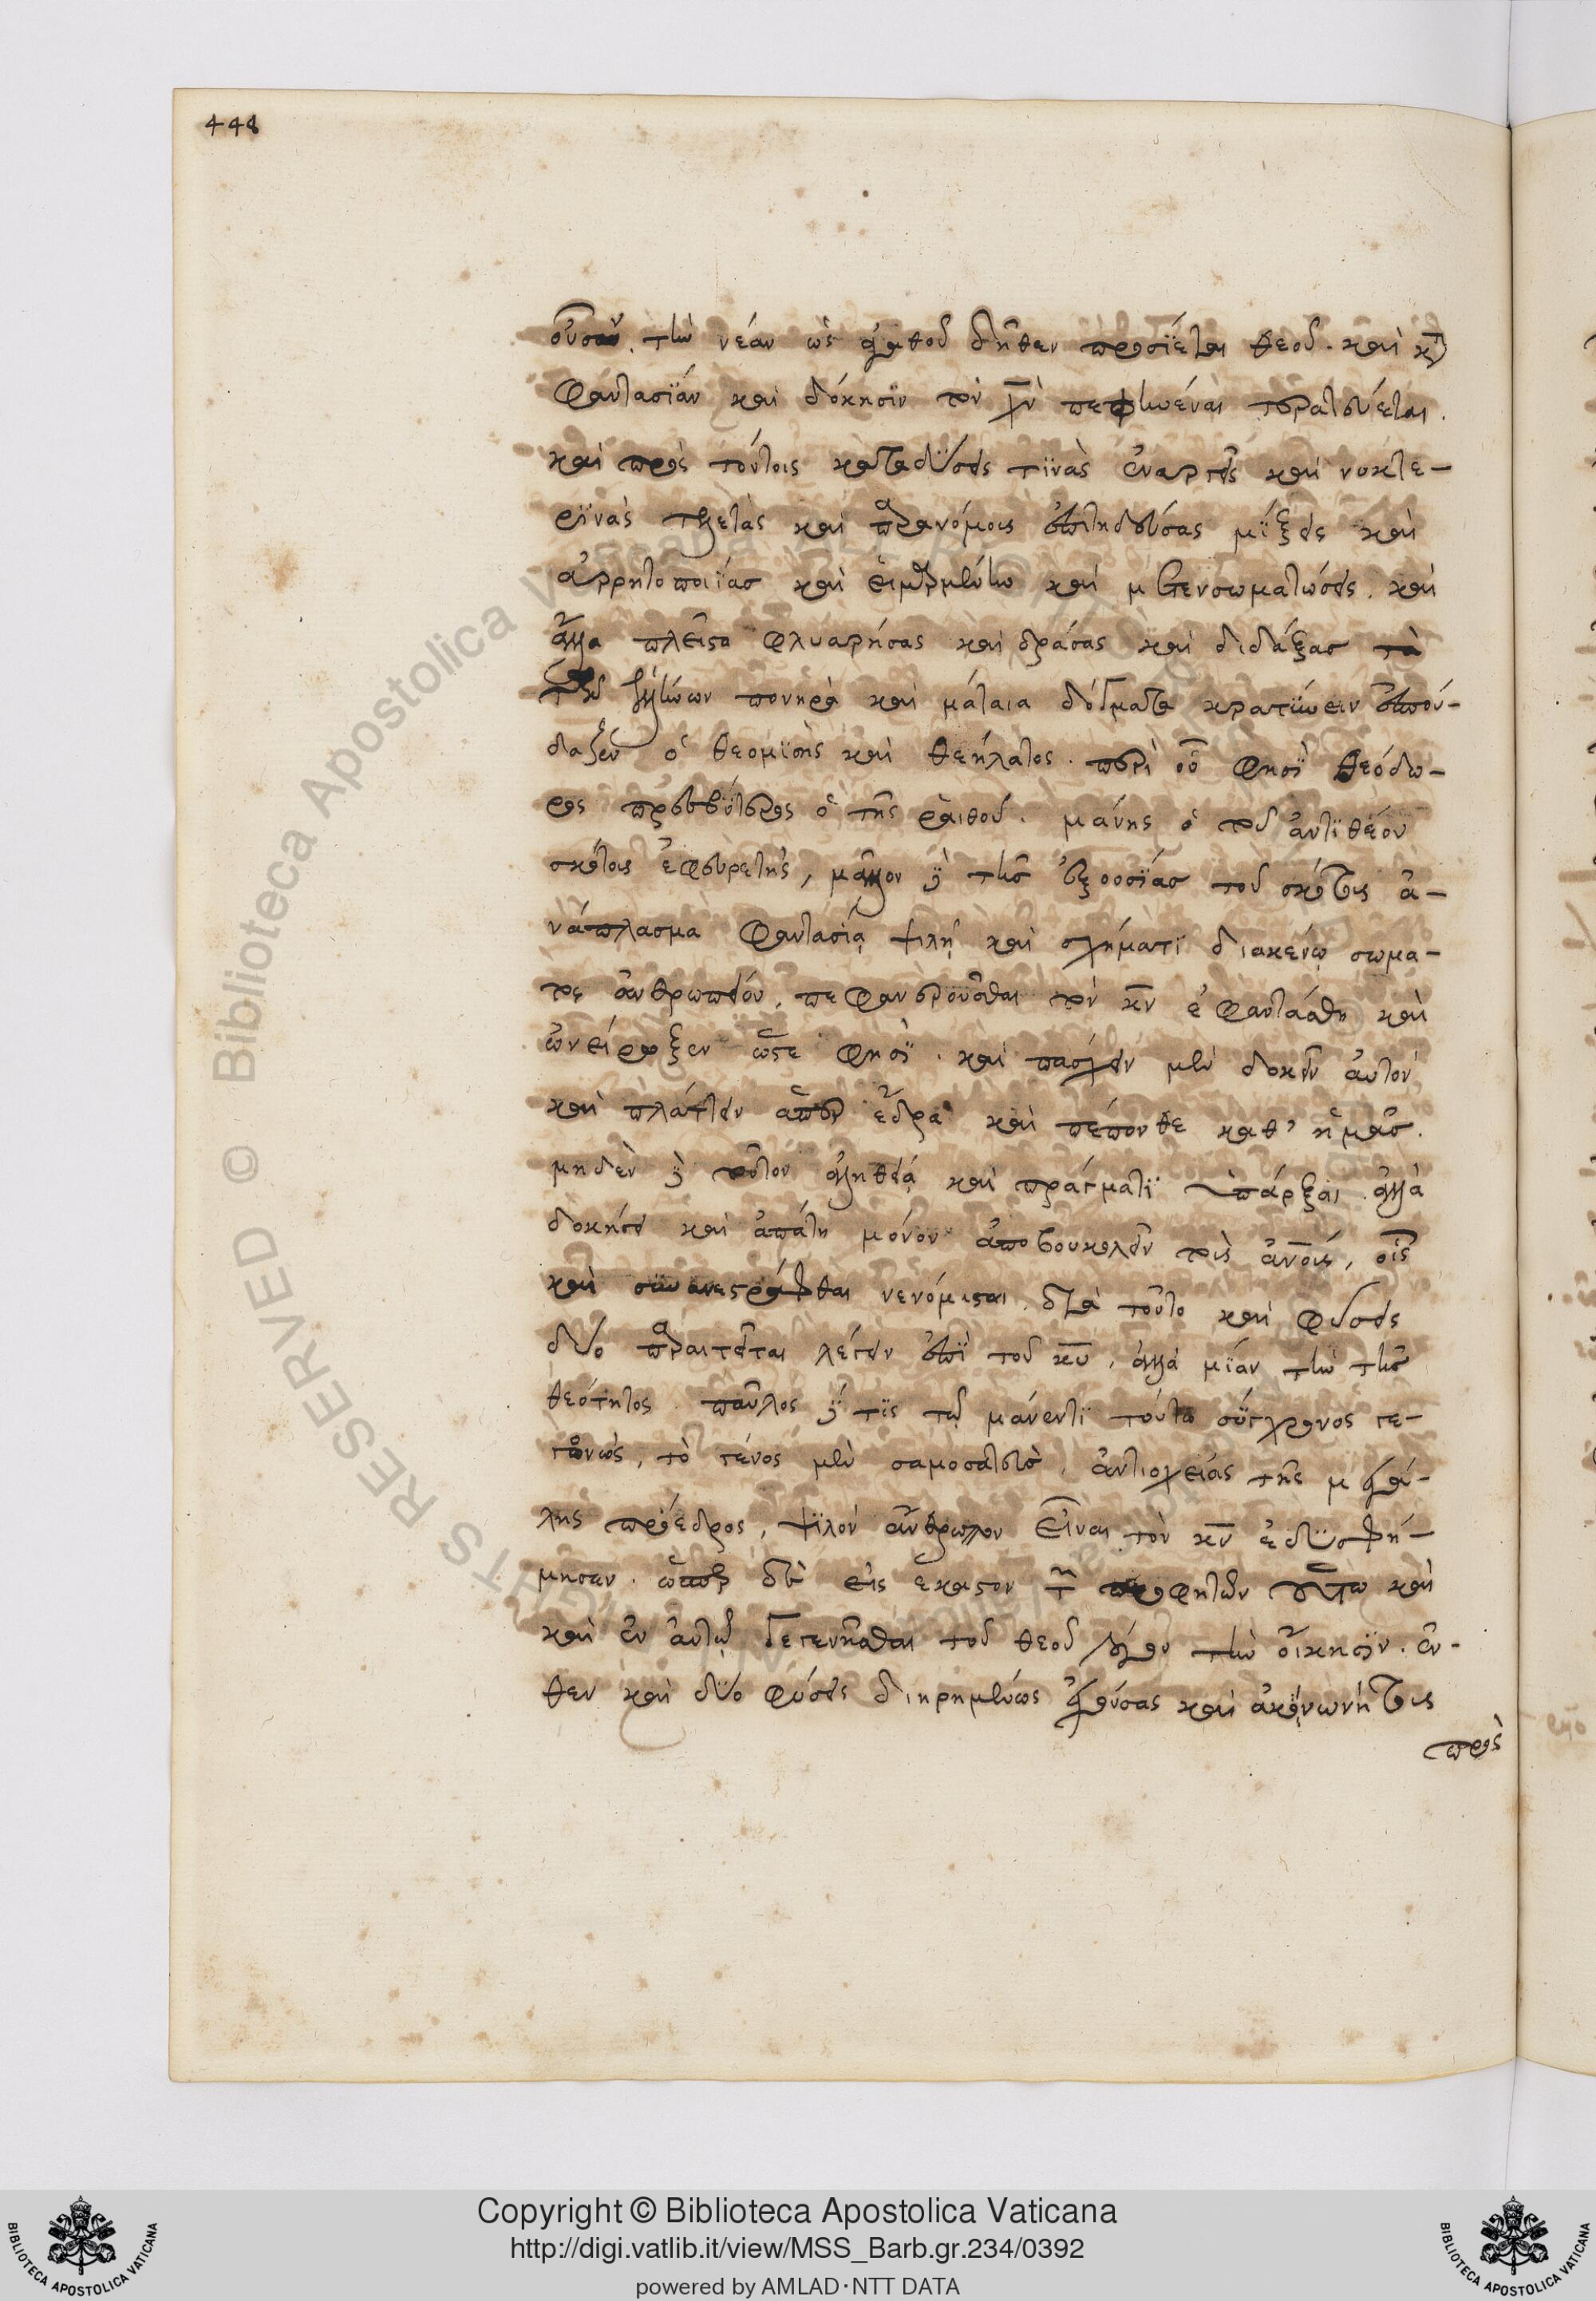 448
οὖσαν. τὴν νέαν ὡς ἀγαθοῦ δῆθεν προσΐεται θεοῦ. καὶ κατὰ
φαντασΐαν καὶ δόκησϊν τὸν χν πεφηνέναι τερατεύεται.
καὶ πρὸς τούτοις καταδύσεις τϊνὰς ἐναργεῖς καὶ νυκτε-
ρϊνὰς τελετὰς καὶ παρανόμοις ἐπιτηδεύσας μΐξεις καὶ
ἀρρητοποιΐας καὶ εἱμαρμένην καὶ μετενσωματώσεις. καὶ
ἄλλα πλεῖστα φλυαρήσας καὶ δράσας καὶ διδάξας τὰ
τῶν ἑλλήνων πονηρὰ καὶ μάταια δόγματα κρατύνειν ἐσπού-
δαζεν ὁ θεομϊσὴς καὶ θεήλατος. περὶ οὗ φησῒ θεόδω-
ρος πρεσβύτερος ὁ τῆς ῥαιθοῦ. μάνης ὁ τοῦ ἀντϊθέου
σκότους ἐφευρετὴς, μᾶλλον δὲ τῆς ἐξουσΐας τοῦ σκότους ἀ-
νάπλασμα φαντασίᾳ ψιλῇ καὶ σχήματϊ διακένῳ σωμα-
τος ἀνθρωπείου. πεφανερῶσθαι τὸν κν ἐφαντάσθη καὶ
ὠνείρωξεν ὥστε φησῒ. καὶ πάσχειν μὲν δοκεῖν αὐτὸν
καὶ πλάττειν ἅπερ ἔδρα καὶ πέπονθε καθ' ἡμᾶς.
μηδὲν δὲ τοῦτον ἀληθείᾳ καὶ πράγματϊ ὑπάρξαι. ἀλλὰ
δοκήσει καὶ ἀπάτῃ μόνον ἀποβουκολεῖν τοὺς ἀνους, οἷς
καὶ συνανεστράφθαι νενόμισται. διὰ τοῦτο καὶ φύσεις
δύο παραιτεῖται λέγειν ἐπῒ τοῦ κυ, ἀλλὰ μΐαν τὴν τῆς
θεότητος. παῦλος δέ τϊς τῷ μάνεντϊ τούτῳ σύγχρονος γε-
γονὼς, τὸ γένος μὲν σαμοσατεὺς, ἀντιοχείας τῆς μεγά-
λης πρόεδρος, ψϊλὸν ἄνθρωπον εἶναι τὸν κν ἐδϋσφή-
μησεν. ὥσπερ δὲ εἰς ἕκαστον τῶν προφητῶν οὕτω καὶ
καὶ ἐν αὐτῷ γεγενῆσθαι τοῦ θεοῦ λόγου τὴν οἴκησϊν. ἔν-
θεν καὶ δύο φύσεις διῃρημένως ἐχούσας καὶ ἀκοινωνήτους
πρὸς
Copyright © Biblioteca Apostolica Vaticana
http://digi.vatlib.it/view/MSS_Barb.gr.234/0392
powered by AMLAD·NTT DATA